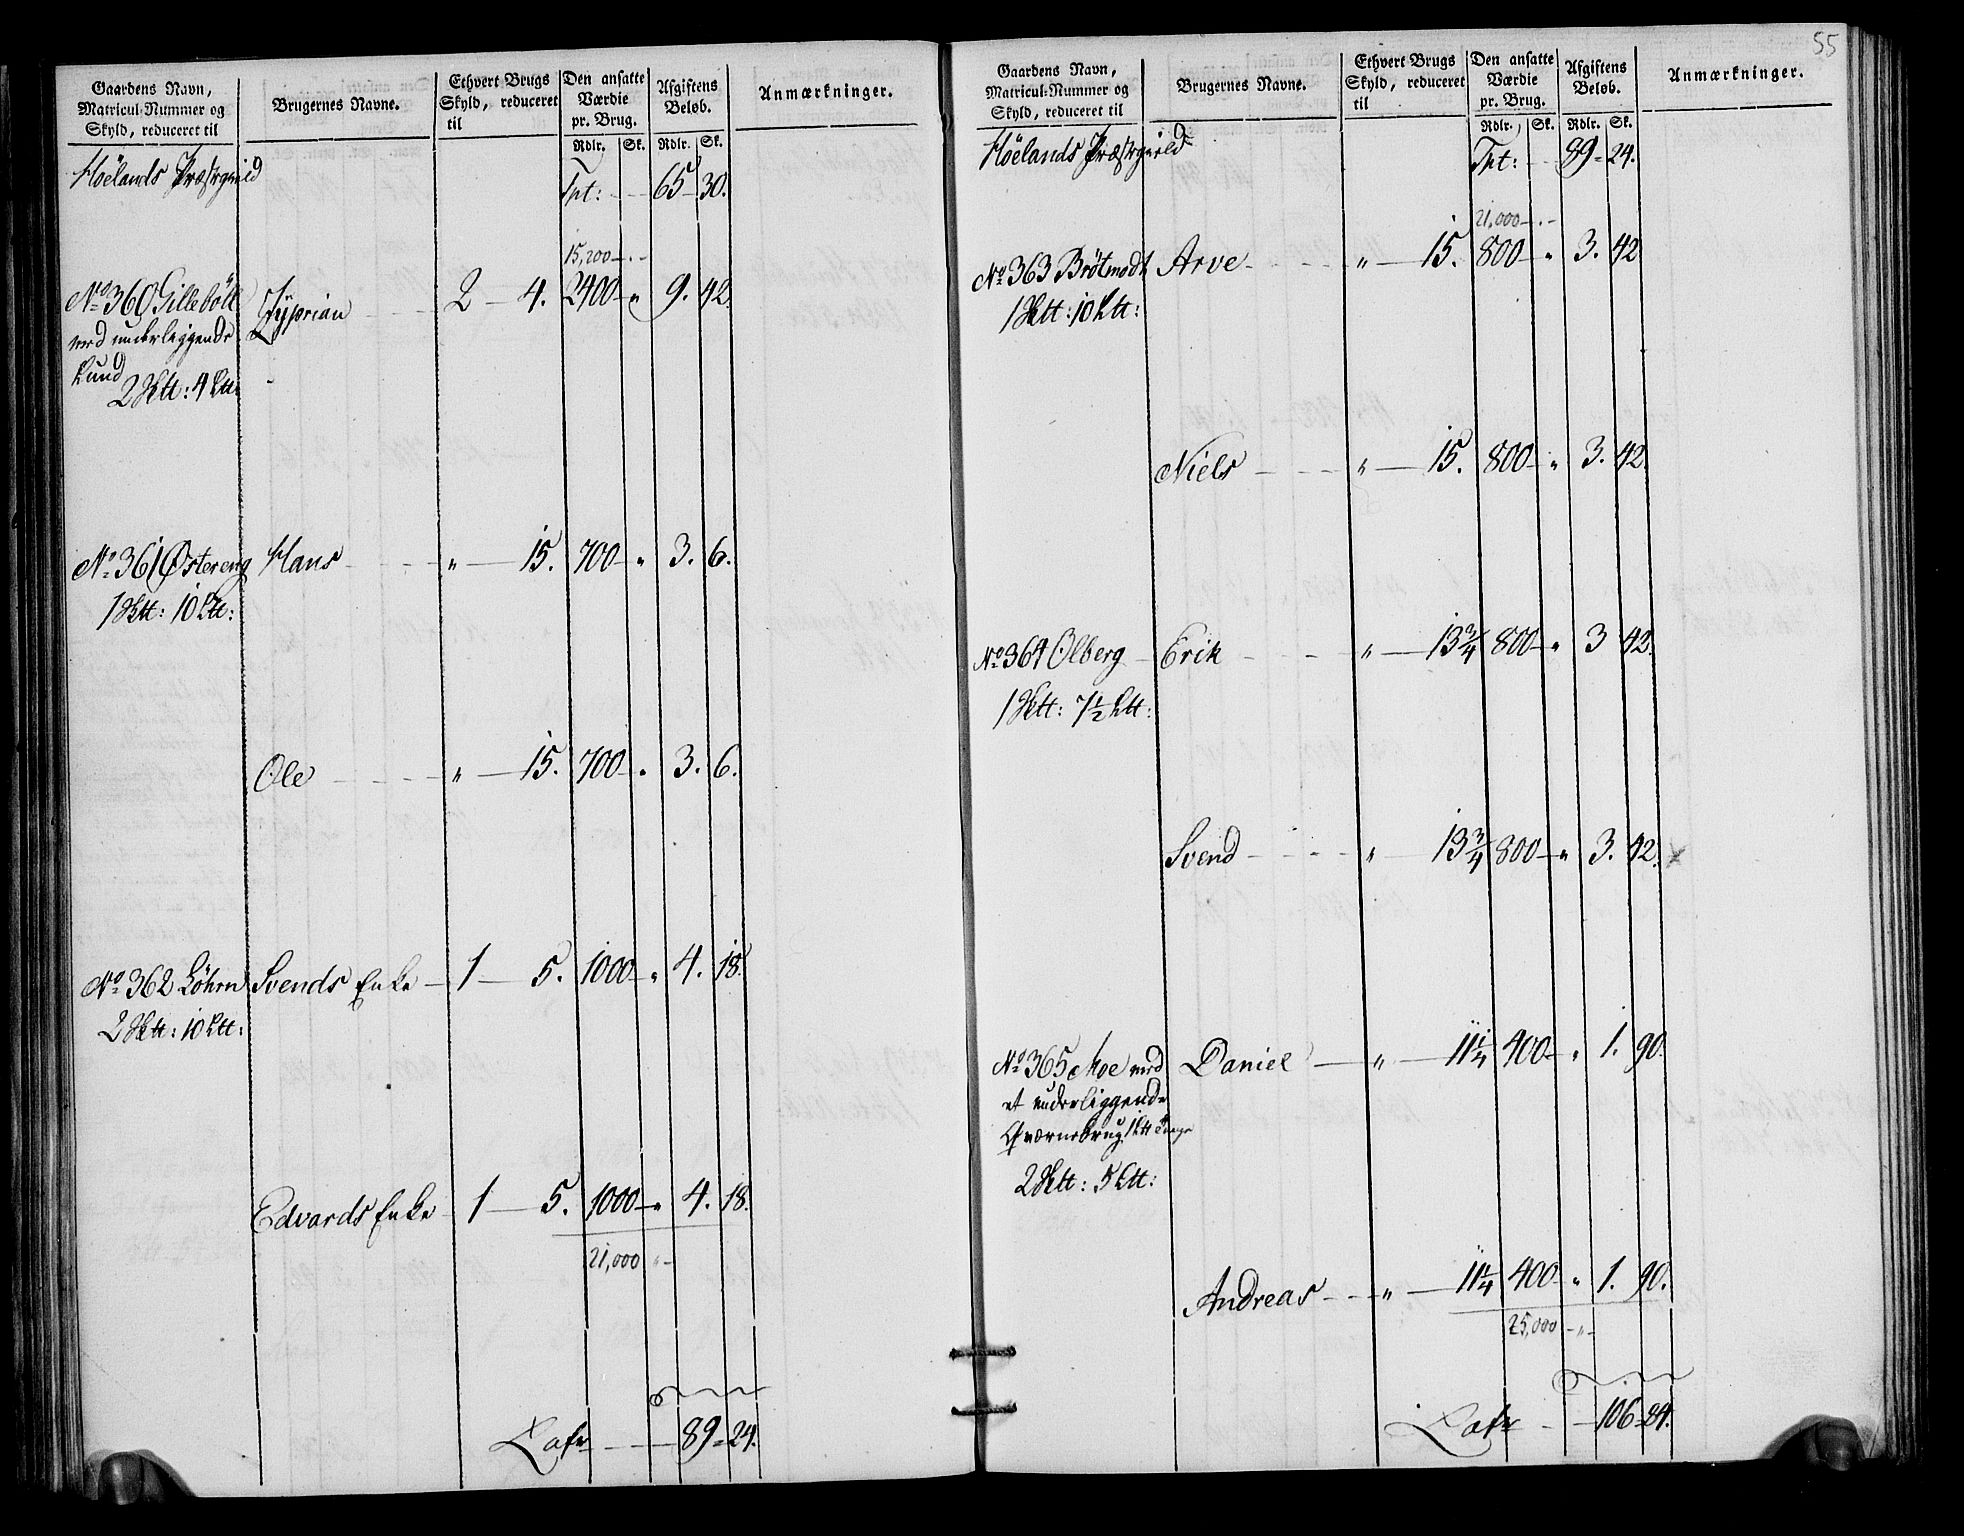 Gaardens Navn,
Matricul-Nummer og
Skyld, reduceret til
Brugernes Navne.
Ethvert Brugs
Skyld, reduceret
til
Den ansatte
Værdie
pr. Brug.
Rdlr. Sk.
Afgiftens
Beløb.
Rdlr. Sk.
Anmærkninger.
Høelands Præstegield Tpt: 65 30.
15,200
No 360 Gillebøll Zyprian 2 4. 2400 " 9. 42.
med underliggende
Lund
2 Sktt: 4 Ltt:
No 361 Østereng Hans " 15. 700 " 3. 6.
1 Sktt: 10 Ltt:
Ole " 15. 700 " 3. 6.
No 362 Løhrn Svends Enke 1 5. 1000 " 4. 18.
2 Sktt: 10 Ltt:
Edvards Enke 1 5. 1000 " 4. 18.
21,000 "
Lats 89 24.
55
Gaardens Navn,
Matricul-Nummer og
Skyld, reduceret til
Brugernes Navne.
Ethvert Brugs
Skyld, reduceret
til
Den ansatte
Værdie
pr. Brug.
Rdlr. Sk.
Afgiftens
Beløb.
Rdlr. Sk.
Anmærkninger.
Høelands Præstegield Tpt: 89 24.
21,000
No 363 Brøtmodt Arve " 15. 800 " 3. 42
1 Sktt: 10 Ltt:
Niels " 15. 800 " 3. 42
No 364 Olberg Erik " 13 3/4 800 " 3 42.
1 Sktt: 7 1/2 Ltt:
Svend " 13 3/4 800 " 3. 42.
No 365 Moe med Daniel " 11 1/4 400 " 1. 90
et underliggende
Qværnebrug 1 Ltt
2 Sktt: 5 Ltt:
Andreas " 11 1/4 400 " 1. 90.
25,000 "
Lats 106 24.